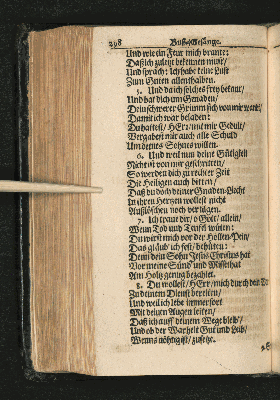 298 Buß-Gesänge.
Und wie ein Feur mich brante:
Daß ich zuletzt bekennen müst/
Und sprach: Ich habe keine Lust
Zum Guten allenthalben.
5. Und da ich solches frey bekant/
Und bat dich um Genaden/
Dein schwerer Grimm sich von mir wandt/
Damit ich war beladen:
Du hattest/ HErr/ mit mir Gedult/
Vergabest mir auch alle Schuld
Um deines Sohnes willen.
6. Und weil nun deine Gütigkeit
Nicht ist von mir gewichen/
So werden dich zu rechter Zeit
Die Heiligen auch bitten/
Daß du doch deiner Gnaden-Liecht
In ihren Herzen wollest nicht
Auslöschen noch versagen.
7. Ich traue dir/ o Gott/ allein/
Wenn Tod und Teufel wüten:
Du wirst mich vor der Höllen-Pein/
Das gläub ich fest/ behüten:
Denn dein Sohn Jesus Christus hat
Vor meine Sünd und Missethat
Am Holtz genug bezahlet.
8. Du wollest/ HErr/ mich durch den
Zu deinem Dienst bereiten/
Und weil ich lebe immerfort
Mit deinen Augen leiten/
Daß ich auf deinem Wege bleib/
Und ob der Warheit Gut und Leib/
Wenns nöthig ist/ zusetze.